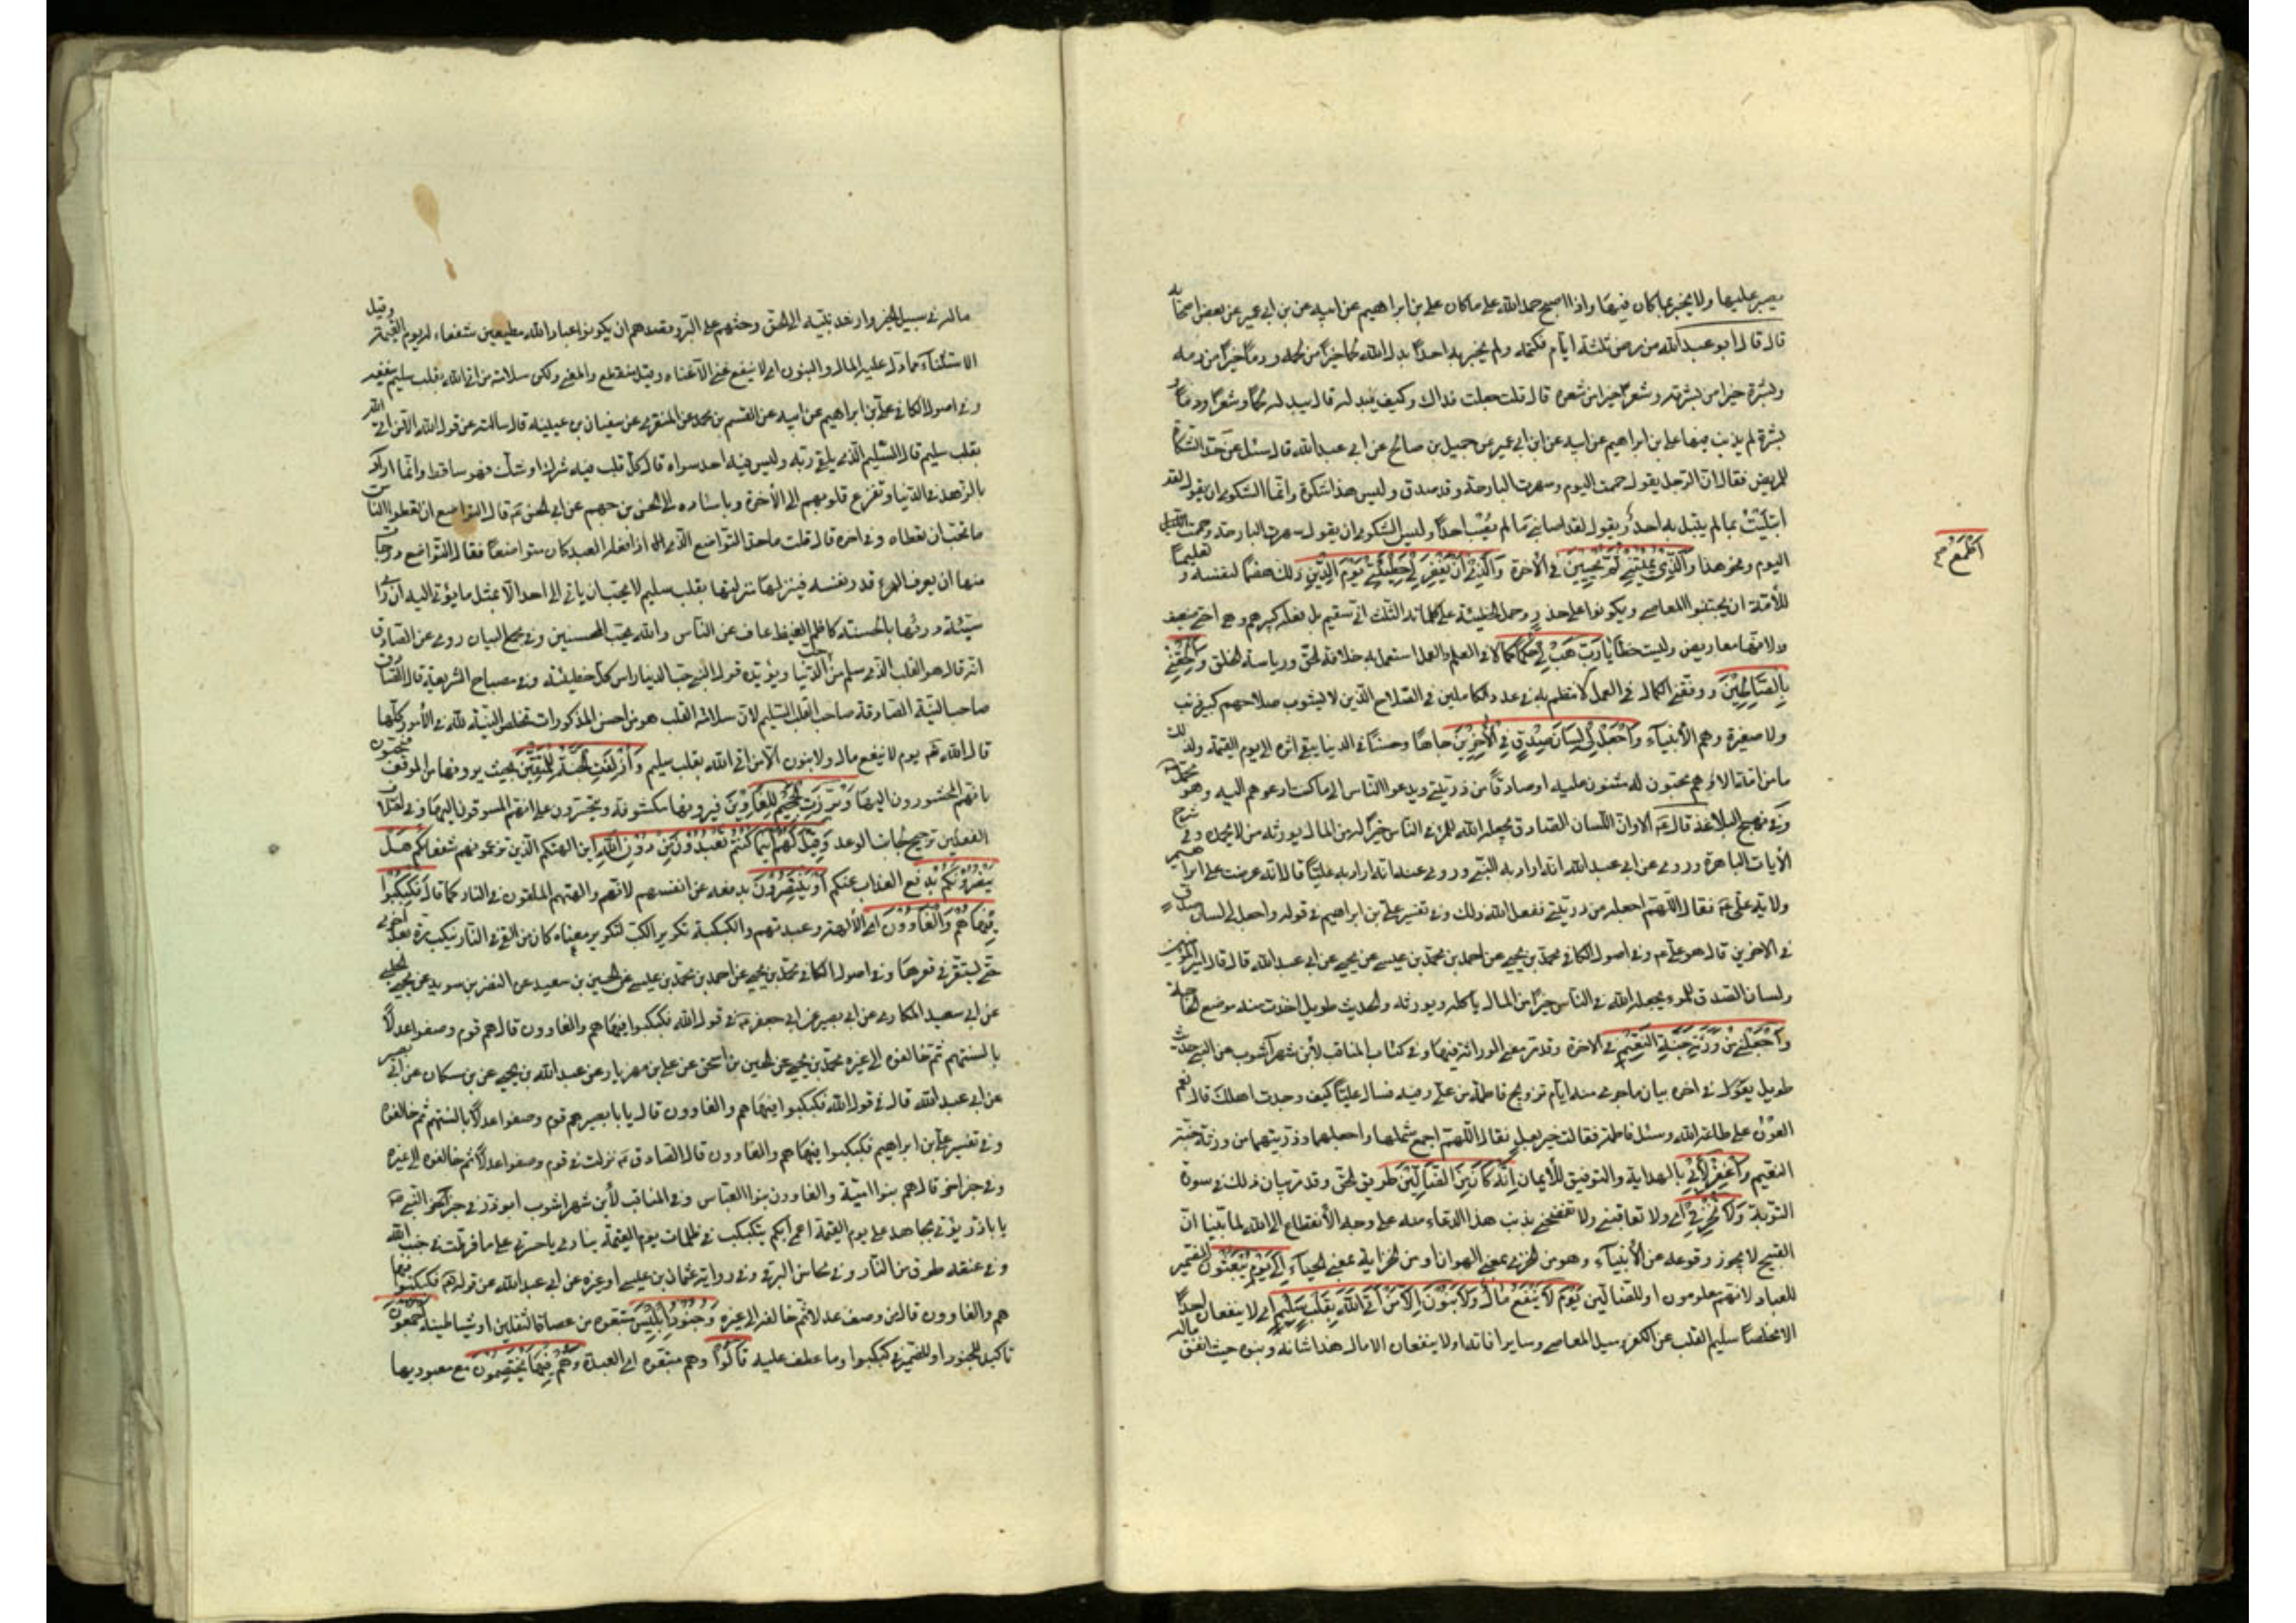 يصبر عليها ولا يخبر بما كان فيها واذا اصبح حمد الله على ما كان على بن ابراهيم عن ابيه عن بن ابى عمير عن بعض اصحابه
قال قال ابو عبدالله من مرض ثلثة ايام فكتمه ولم يخبر به احدًا بدل الله له لحمًا خيرًا من لحمه ودمًا خيرًا من دمه
وبشرة خيرا من بشرته وشعرًا خيرا من شعره قال قلت جعلت فداك وكيف يبدله قال يبدله لحمًا وشعرًا ودمًا و
بشرة لم يذنب فيها على بن ابراهيم عن ابيه عن ابن ابى عمير عن جميل بن صالح عن ابى عبد الله قال سئل عن حد الشكاة
للمريض فقال ان الرجل يقول حممت اليوم وسهرت البارحة وقد صدق وليس هذا شكوة وانما الشكوى ان يقول لقد
ابتليت بما لم يبتل به احد او يقول لقد اصابنى ما لم يصب احدًا وليس الشكوى ان يقول سهرت البارحة وحممت
اليوم ونحو هذا وَالَّذِى يُمِيتُنِى ثُمَّ يُحْيِينِ فى الاخرة وَالَّذِى أَنْ يَغْفِرَ لِى خَطِيئَتِى يَوْمَ الدِّينِ ذلك هضمًا لنفسه و
أَطْمَعُ صح
للأمة ان يجتنبوا المعاصى ويكونوا على حذر وحمل الخطيئة على كلماته الثلث انى سقيم بل فعله كبيرهم وهى اختى ضعيف
لانها معاريض وليست خطايا رَبِّ هَبْ لِى حُكْمًا كمالا فى العلم والعمل استعد به خلافة الحق ورياسة الخلق وَأَلْحِقْنِى
بِالصَّالِحِينَ ووفقنى الكمال فى العمل لانتظم به فى عداد الكاملين فى الصلاح الذين لا يشوب صلاحهم كبير ذنب
ولا صغيرة وهم الأنبياء وَاجْعَلْ لِى لِسَانَ صِدْقٍ فِى الْآخِرِينَ جاهًا وحسنًا فى الدنيا يبقى اثره الى يوم القيمة ولذلك
ما من امة الا وهم محبون له مثنون عليه او صادقًا من ذريتى ويدعوا الناس الى ما كنت ادعوهم اليه وهو
وفى نهج البلاغة قال الا وان اللسان الصادق يجعله الله للمرء فى الناس خيرًا له من المال يورثه من لا يحمده وفى شرح
الأيات الباهرة وروى عن ابى عبد الله انه اراد به النبى وروى عنه انه اراد به عليًا قال انه عرضت على ابراهيم
ولاية على فقال اللهم اجعله من ذريتى ففعل الله ذلك وفى تفسير على بن ابراهيم فى قوله واجعل لى لسان صدق
فى الاخرين قال هو على وفى اصول الكافى محمد بن يحيى عن احمد بن محمد بن عيسى عن يحيى عن ابى عبد الله قال قال امير المؤمنين
ولسان الصدق للمرء يجعله الله فى الناس خيرًا من المال يأكله ويورثه والحديث طويل اخذت منه موضع الحاجة
وَاجْعَلْنِى مِنْ وَرَثَةِ جَنَّةِ النَّعِيمِ فى الاخرة وقد مر معنى الوراثة فيها وفى كتاب المناقب لأبن شهرآشوب عن النبى حديث
طويل يقول فى اخره بيان ما جرى منه ايام تزويج فاطمة من على وفيه فسأل عليًا كيف وجدت اهلك قال نعم
العون على طاعة الله وسئل فاطمة فقالت خير بعل فقال اللهم اجمع شملهما واجعلهما وذريتهما من ورثة جنة
النعيم وَاغْفِرْ لِأَبِى بالهداية والتوفيق للايمان إِنَّهُ كَانَ مِنَ الضَّالِّينَ طريق الحق وقد مر بيان ذلك فى سورة
التوبة وَلَا تُخْزِنِى اى ولا تعاقبنى ولا تفضحنى بذنب هذا الدعاء منه على وجه الانقطاع الى الله لما بينا ان
القبيح لا يجوز وقوعه عن الأنبياء وهو من الخزى بمعنى الهوان او من الخزاية بمعنى الحياء يَوْمَ يُبْعَثُونَ الضمير
للعباد لانهم معلومون او للضالين يَوْمَ لَا يَنْفَعُ مَالٌ وَلَا بَنُونَ إِلَّا مَنْ أَتَى اللَّهَ بِقَلْبٍ سَلِيمٍ اى لا ينفعان احدًا
الا مخلصًا سليم القلب عن الكفر وميل المعاصى وساير افاته او لا ينفعان الا مال من هذا شانه وبنوه حيث انفق ماله
ماله فى سبيل الخير وارشد بنيه الى الحق وحثهم على البر وقصد بهم ان يكونوا عباد الله مطيعين شفعاء له يوم القيمة وقيل
الاستثناء مما دل عليه المال والبنون اى لا ينفع غنى الا غناه وقيل منقطع والمعنى ولكن سلامة من اتى الله بقلب سليم
وفى اصول الكافى على بن ابراهيم عن ابيه عن القسم بن محمد عن المنقرى عن سفيان بن عيينة قال سالته عن قول الله الا من اتى الله
بقلب سليم قال السليم الذى يلقى ربه وليس فيه احد سواه قال كل قلب فيه شرك او شك فهو ساقط وانما اراد
بالزهد فى الدنيا وتفرغ قلوبهم الى الأخرة وباسناده الى الحسن بن جهم عن ابى الحسن قال التواضع ان تعطوا الناس
ما تحب ان تعطاه وفى اخره قال قلت ما حد التواضع الذى اذا فعله العبد كان متواضعًا فقال التواضع درجات
منها ان يعرف المرء قدر نفسه فينزلها منزلتها بقلب سليم لا يحب ان ياتى الى احد الا مثل ما يؤتى اليه ان راى
سيئة درئها بالحسنة كاظم الغيظ عاف عن الناس والله يحب المحسنين وفى مجمع البيان روى عن الصادق
انه قال هو القلب الذى سلم من حب الدنيا ويؤيده قول النبى حب الدنيا راس كل خطيئة وفى مصباح الشريعة قال الصادق
صاحب النية الصادقة صاحب القلب السليم لان سلامة القلب من هواجس المذكورات تخلص النية لله فى الأمور كلها
قال الله يوم لا ينفع مال ولا بنون الا من اتى الله بقلب سليم وَأُزْلِفَتِ الْجَنَّةُ لِلْمُتَّقِينَ بحيث يرونها من الموقف فيتبجحون
بانهم المحشورون اليها وَبُرِّزَتِ الْجَحِيمُ لِلْغَاوِينَ فيرونها مكشوفة ويتحسرون على انهم المسوقون اليها وفى اختلاف
الفعلين ترجيح لجانب الوعد وَقِيلَ لَهُمْ أَيْنَمَا كُنْتُمْ تَعْبُدُونَ مِنْ دُونِ اللَّهِ اين الهتكم الذين تزعمونهم شفعاءكم هَلْ
يَنْصُرُونَكُمْ بدفع العذاب عنكم أَوْ يَنْتَصِرُونَ بدفعه عن انفسهم لانهم والهتهم الملقون فى النار كما قال فَكُبْكِبُوا
فِيهَا هُمْ وَالْغَاوُونَ اى الألهة وعبدتهم والكبكبة تكرير الكب لتكرير معناه كان من القى فى النار ينكب مرة بعد اخرى
حتى يستقر فى قعرها وفى اصول الكافى محمد بن يحيى عن احمد بن محمد بن عيسى عن الحسين بن سعيد عن النضر بن سويد عن يحيى الحلبى
عن ابى سعيد المكارى عن ابى بصير عن ابى جعفر فى قول الله فكبكبوا فيها هم والغاوون قال هم قوم وصفوا عدلًا
بالسنتهم ثم خالفوه الى غيره محمد بن يحيى عن الحسين بن اسحق عن على بن مهزيار عن عبد الله بن يحيى عن بن مسكان عن ابى بصير
عن ابى عبد الله قال فى قول الله فكبكبوا فيها هم والغاوون قال يا بابصير هم قوم وصفوا عدلًا بالسنتهم ثم خالفوه
وفى تفسير على بن ابراهيم فكبكبوا فيها هم والغاوون قال الصادق نزلت فى قوم وصفوا عدلًا ثم خالفوه الى غيره
وفى خبر اخر قال هم بنوا امية والغاوون بنوا العباس وفى المناقب لأبن شهراشوب ابو ذر فى خبر عن النبى
يا باذر يؤتى بجاحد على يوم القيمة اعمى ابكم يتكبكب فى ظلمات يوم القيمة ينادى يا حسرتى على ما فرطت فى جنب الله
وفى عنقه طوق من النار وفى محاسن البرقى وفى رواية عثمان بن عيسى او غيره عن ابى عبد الله عن قوله فَكُبْكِبُوا فيها
هم والغاوون قال من وصف عدلا ثم خالفه الى غيره وَجُنُودُ إِبْلِيسَ متبعوه من عصاة الثقلين او شياطينه أَجْمَعُونَ
تاكيد للجنود او للضمير فى كبكبوا وما عطف عليه قَالُوا وهم متبعوه اى العبدة وَهُمْ فِيهَا يَخْتَصِمُونَ مع معبوديها